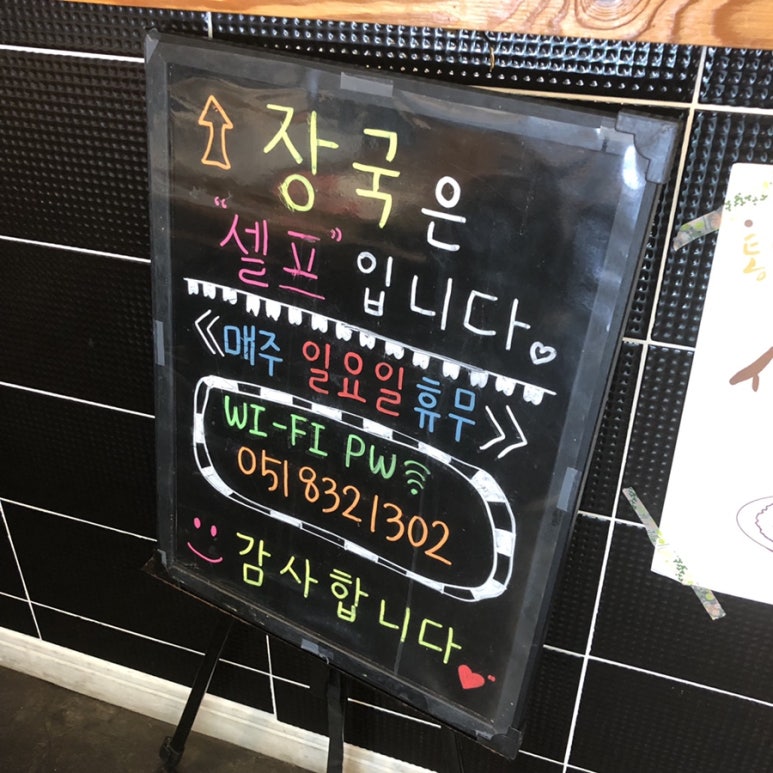 장국은
"셀프"입니다
매주 일요일 휴무
WI-FI PW
0518321302
감사합니다